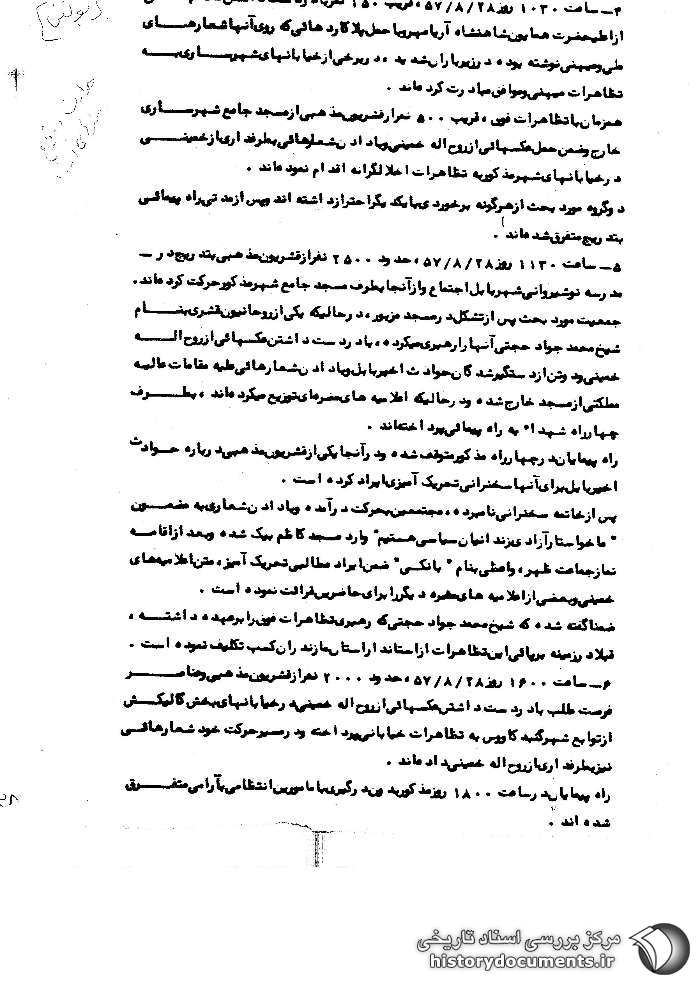 ۴ـ ساعت ۱۰۳۰ روز ۵۷/۸/۲۸، قریب ۱۵۰ نفر
ازاعلیحضرت همایون شاهنشاه آریامهر با حمل پلاکاردهائی که روی آنها شعارهای
ملی و میهنی نوشته بوده در زیر باران شدید، در برخی از خیابانهای شهر ساری به
تظاهرات میهنی و موافق مبادرت کرده‌اند .
همزمان با تظاهرات فوق، قریب ۵۰۰ نفر از قشریون مذهبی از مسجد جامع شهر ساری
خارج و ضمن حمل عکسهائی از روح اله خمینی و با دادن شعارهائی بطرفداری از خمینی
در خیابانهای شهر مذکور به تظاهرات اخلالگرانه اقدام نموده‌اند .
دوگروه مورد بحث از هرگونه برخوردی با یکدیگر احتراز داشته اند و پس از مدتی راه پیمائی
بتدریج متفرق شده‌اند .
۵ـ ساعت ۱۱۳۰ روز ۵۷/۸/۲۸، حدود ۲۵۰۰ نفر از قشریون مذهبی بتدریج در ـ
مدرسه نوشیروانی شهر بابل اجتماع و از آنجا بطرف مسجد جامع شهر مذکور حرکت کرده‌اند.
جمعیت مورد بحث پس از تشکل در مسجد مزبور، در حالیکه یکی از روحانیون قشری بنام
شیخ محمد جواد حجتی آنها را رهبری میکرده، با در دست داشتن عکسهائی از روح اله
خمینی و دو تن از دستگیر شدگان حوادث اخیر بابل و با دادن شعارهائی علیه مقامات عالیه
مملکتی از مسجد خارج شده و در حالیکه اعلامیه های مضره‌ای توزیع میکرده‌اند، بطرف
چهارراه شهدا" به راه پیمائی پرداخته‌اند .
راه پیمایان در چهارراه مذکور متوقف شده و در آنجا یکی از قشریون مذهبی درباره حوادث
اخیر بابل برای آنها سخنرانی تحریک آمیزی ایراد کرده است .
پس از خاتمه سخنرانی نامبرده، مجتمعین بحرکت درآمده و با دادن شعاری به مضمون
" ما خواستار آزادی زندانیان سیاسی هستیم" وارد مسجد کاظم بیک شده و بعد از اقامه
نماز جماعت ظهر، واعظی بنام " بانکی" ضمن ایراد مطالبی تحریک آمیز، متن اعلامیه‌های
خمینی و بعضی از اعلامیه های مضره دیگر را برای حاضرین قرائت نموده است .
ضمنا گفته شده که شیخ محمد جواد حجتی که رهبری تظاهرات فوق را برعهده داشته ،
قبلا در زمینه برپائی این تظاهرات از استاندار استان مازندران کسب تکلیف نموده است .
۶ـ ساعت ۱۶۰۰ روز ۵۷/۸/۲۸، حدود ۲۰۰۰ نفر از قشریون مذهبی و عناصر
فرصت طلب با در دست داشتن عکسهائی از روح اله خمینی در خیابانهای بخش گالیکش
از توابع شهر گنبد کاووس به تظاهرات خیابانی پرداخته و در مسیر حرکت خود شعارهائی
نیز بطرفداری از روح اله خمینی داده‌اند .
راه پیمایان در ساعت ۱۸۰۰ روز مذکور بدون درگیری با مامورین انتظامی بآرامی متفرق
شده اند .
مرکز بررسی اسناد تاریخی
historydocuments.ir